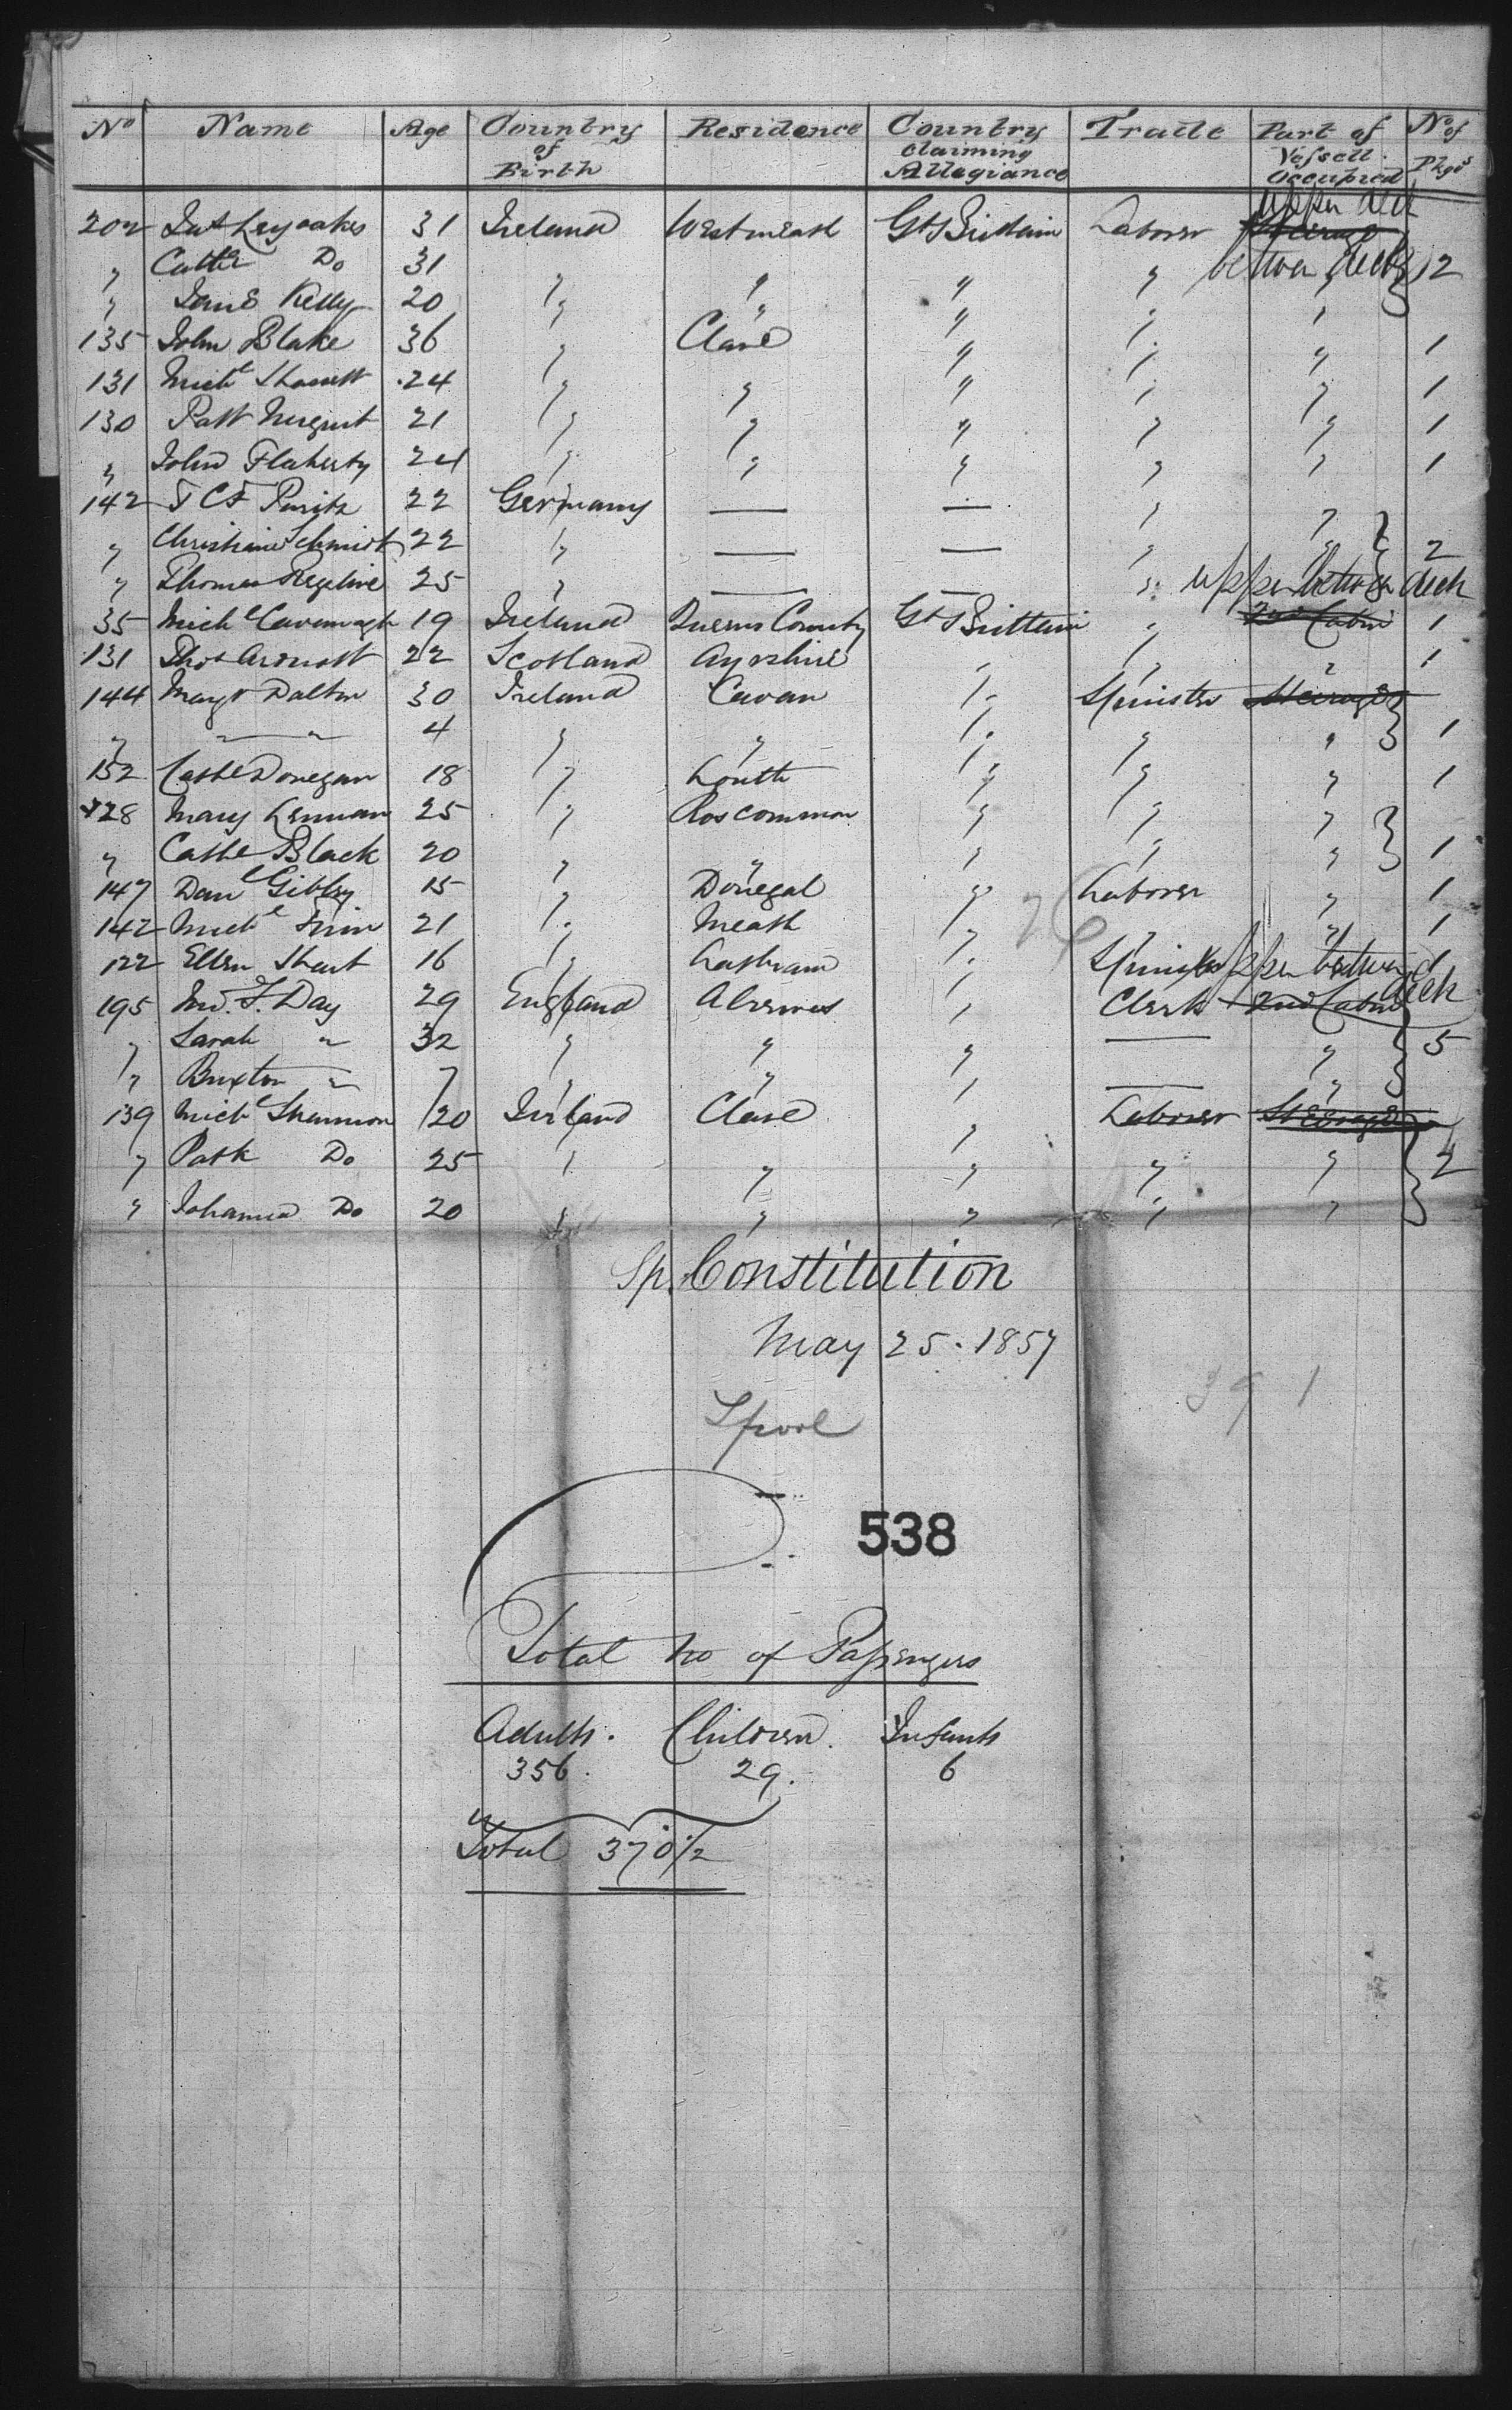 No Name Age Country of Birth Residence Country Claiming Allegiance Trade Part of Vessell Occupied No of Pkgs
upper deck
202 Jas 31 Ireland Westmeath Gt Brittain Laborer Steerage
" Cathe Do 31 " " " " between decks 12
" Jane Kelly 20 " " " " "
135 John Blake 36 " Clare " " " 1
131 Michl 24 " " " " " 1
130 Patt Nugent 21 " " " " " 1
" John Flaherty 24 " " " " " 1
142 22 Germany — — " "
" Christiane Schmidt 22 " — — " " 2
" Thomas 25 " — — " upper between deck
35 Michl Cavanagh 19 Ireland Queens County Gt Brittain " 2nd Cabin 1
131 Thos 22 Scotland Ayrshire " " " 1
144 Magt Dalton 30 Ireland Cavan " Spinster Steerage
" " " 4 " " " " " 1
152 Cathe Donegan 18 " Louth " " " 1
128 Mary Lennan 25 " Roscommon " " "
" Cathe Black 20 " " " " " 1
147 Danl 15 " Donegal " Laborer " 1
142 Michl 21 " Meath " " " 1
122 Ellen 16 " " Spinster upper between deck 1
195 F. Day 29 England " Clerk 2nd Cabin
" Sarah " 32 " " " — " 5
" Buxton " 7 " " " — "
139 Michl Shannon 20 Ireland Clare " Laborer Steerage
" Patk Do 25 " " " " " 2
" Johanna Do 20 " " " " "
Sp. Constitution
May 25. 1857
391
Lpool
538
Total No of Passengers
Adults. Children. Infants
356. 29. 6
Total 370½